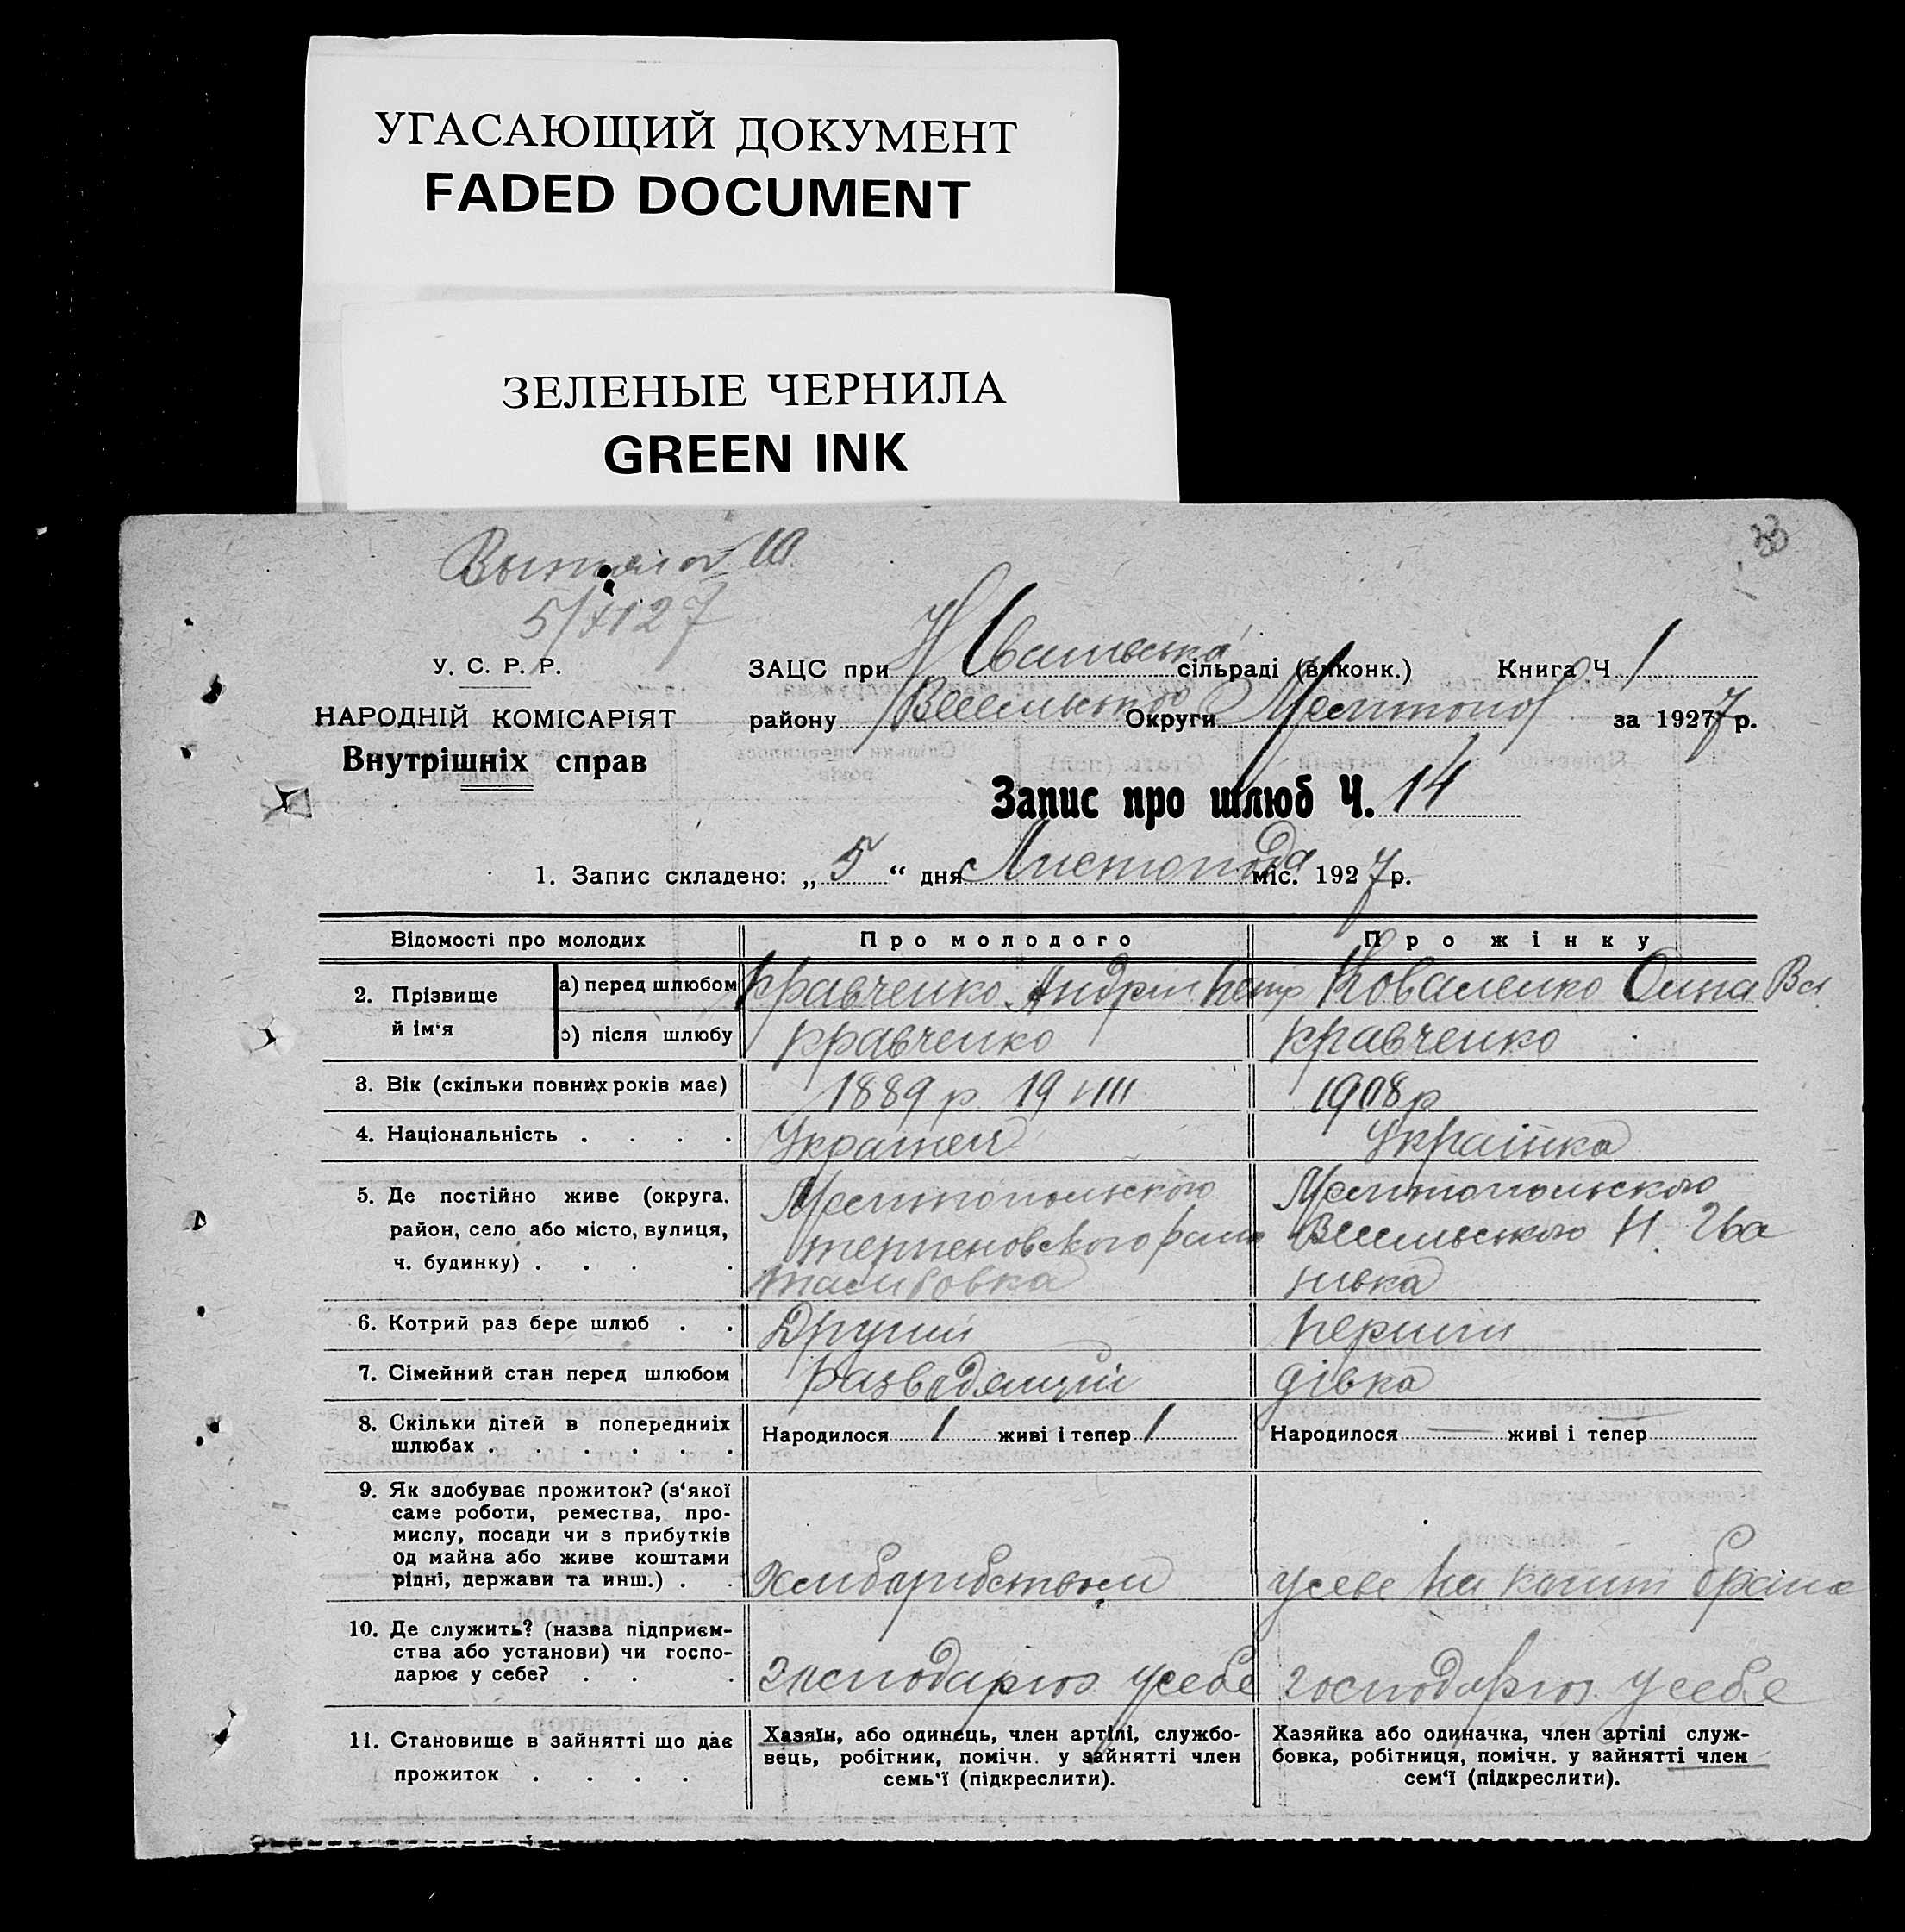 УГАСАЮЩИЙ ДОКУМЕНТ
FADED DOCUMENT
ЗЕЛЕНЫЕ ЧЕРНИЛА
GREEN INK
33
5/XI 27
У. С. Р. Р.
НАРОДНІЙ КОМІСАРІЯТ
Внутрішніх справ
ЗАЦС при сільраді (виконк.) Книга Ч 1
району Округи за 1927 7 р.
Запис про шлюб Ч. 14
1. Запис складено: „ 5 “ дня Листопода міс. 1927 р.
Відомості про молодих Про молодого Про жінку
2. Прізвище й ім‘я
а) перед шлюбом Кравченко Андрій Петр Коваленко Олна Вас
б) після шлюбу Кравченко Кравченко
3. Вік (скільки повних років має) 1889 р 19 VIII 1908 р
4. Національність . . . . Українец Українка
5. Де постійно живе (округа, Мелитопольского Мелитопольского
район, село або місто, вулиця, Веселівського Н. Ива
ч. будинку) . . . . нивка
6. Котрий раз бере шлюб . . Другий Перший
7. Сімейний стан перед шлюбом дівка
8. Скільки дітей в попередниіх Народилося 1 живі і тепер 1 Народилося — живі і тепер
шлюбах . . . . . .
9. Як здобуває прожиток? (з‘якої
саме роботи, ремества, про-
мислу, посади чи з прибутків
од майна або живе коштами
рідні, держави та инш.) . . Хлиборобством на кошти брата
10. Де служить? (назва підприєм-
ства або установи) чи госпо-
дарює у себе? . . . господарює у себе господарює у себе
11. Становище в зайнятті що дає
прожиток . . . .
Хазяїн, або одинець, член артілі, службо-
вець, робітник, помічн. у зайнятті член
семь‘ї (підкреслити).
Хазяйка або одиначка, член артілі служ-
бовка, робітниця, помічн. у зайнятті член
сем‘ї (підкреслити).